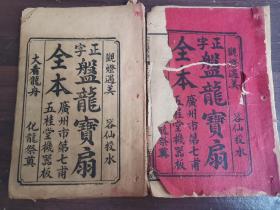 觀燈遇美 谷仙投水
正字盤龍寶扇
全本
廣州市第七甫
五桂堂機器板
大看龍舟 化龍祭奠
觀燈遇美 谷仙投水
正字盤龍寶扇
全本
廣州市第七甫
五桂堂機器板
化龍祭奠